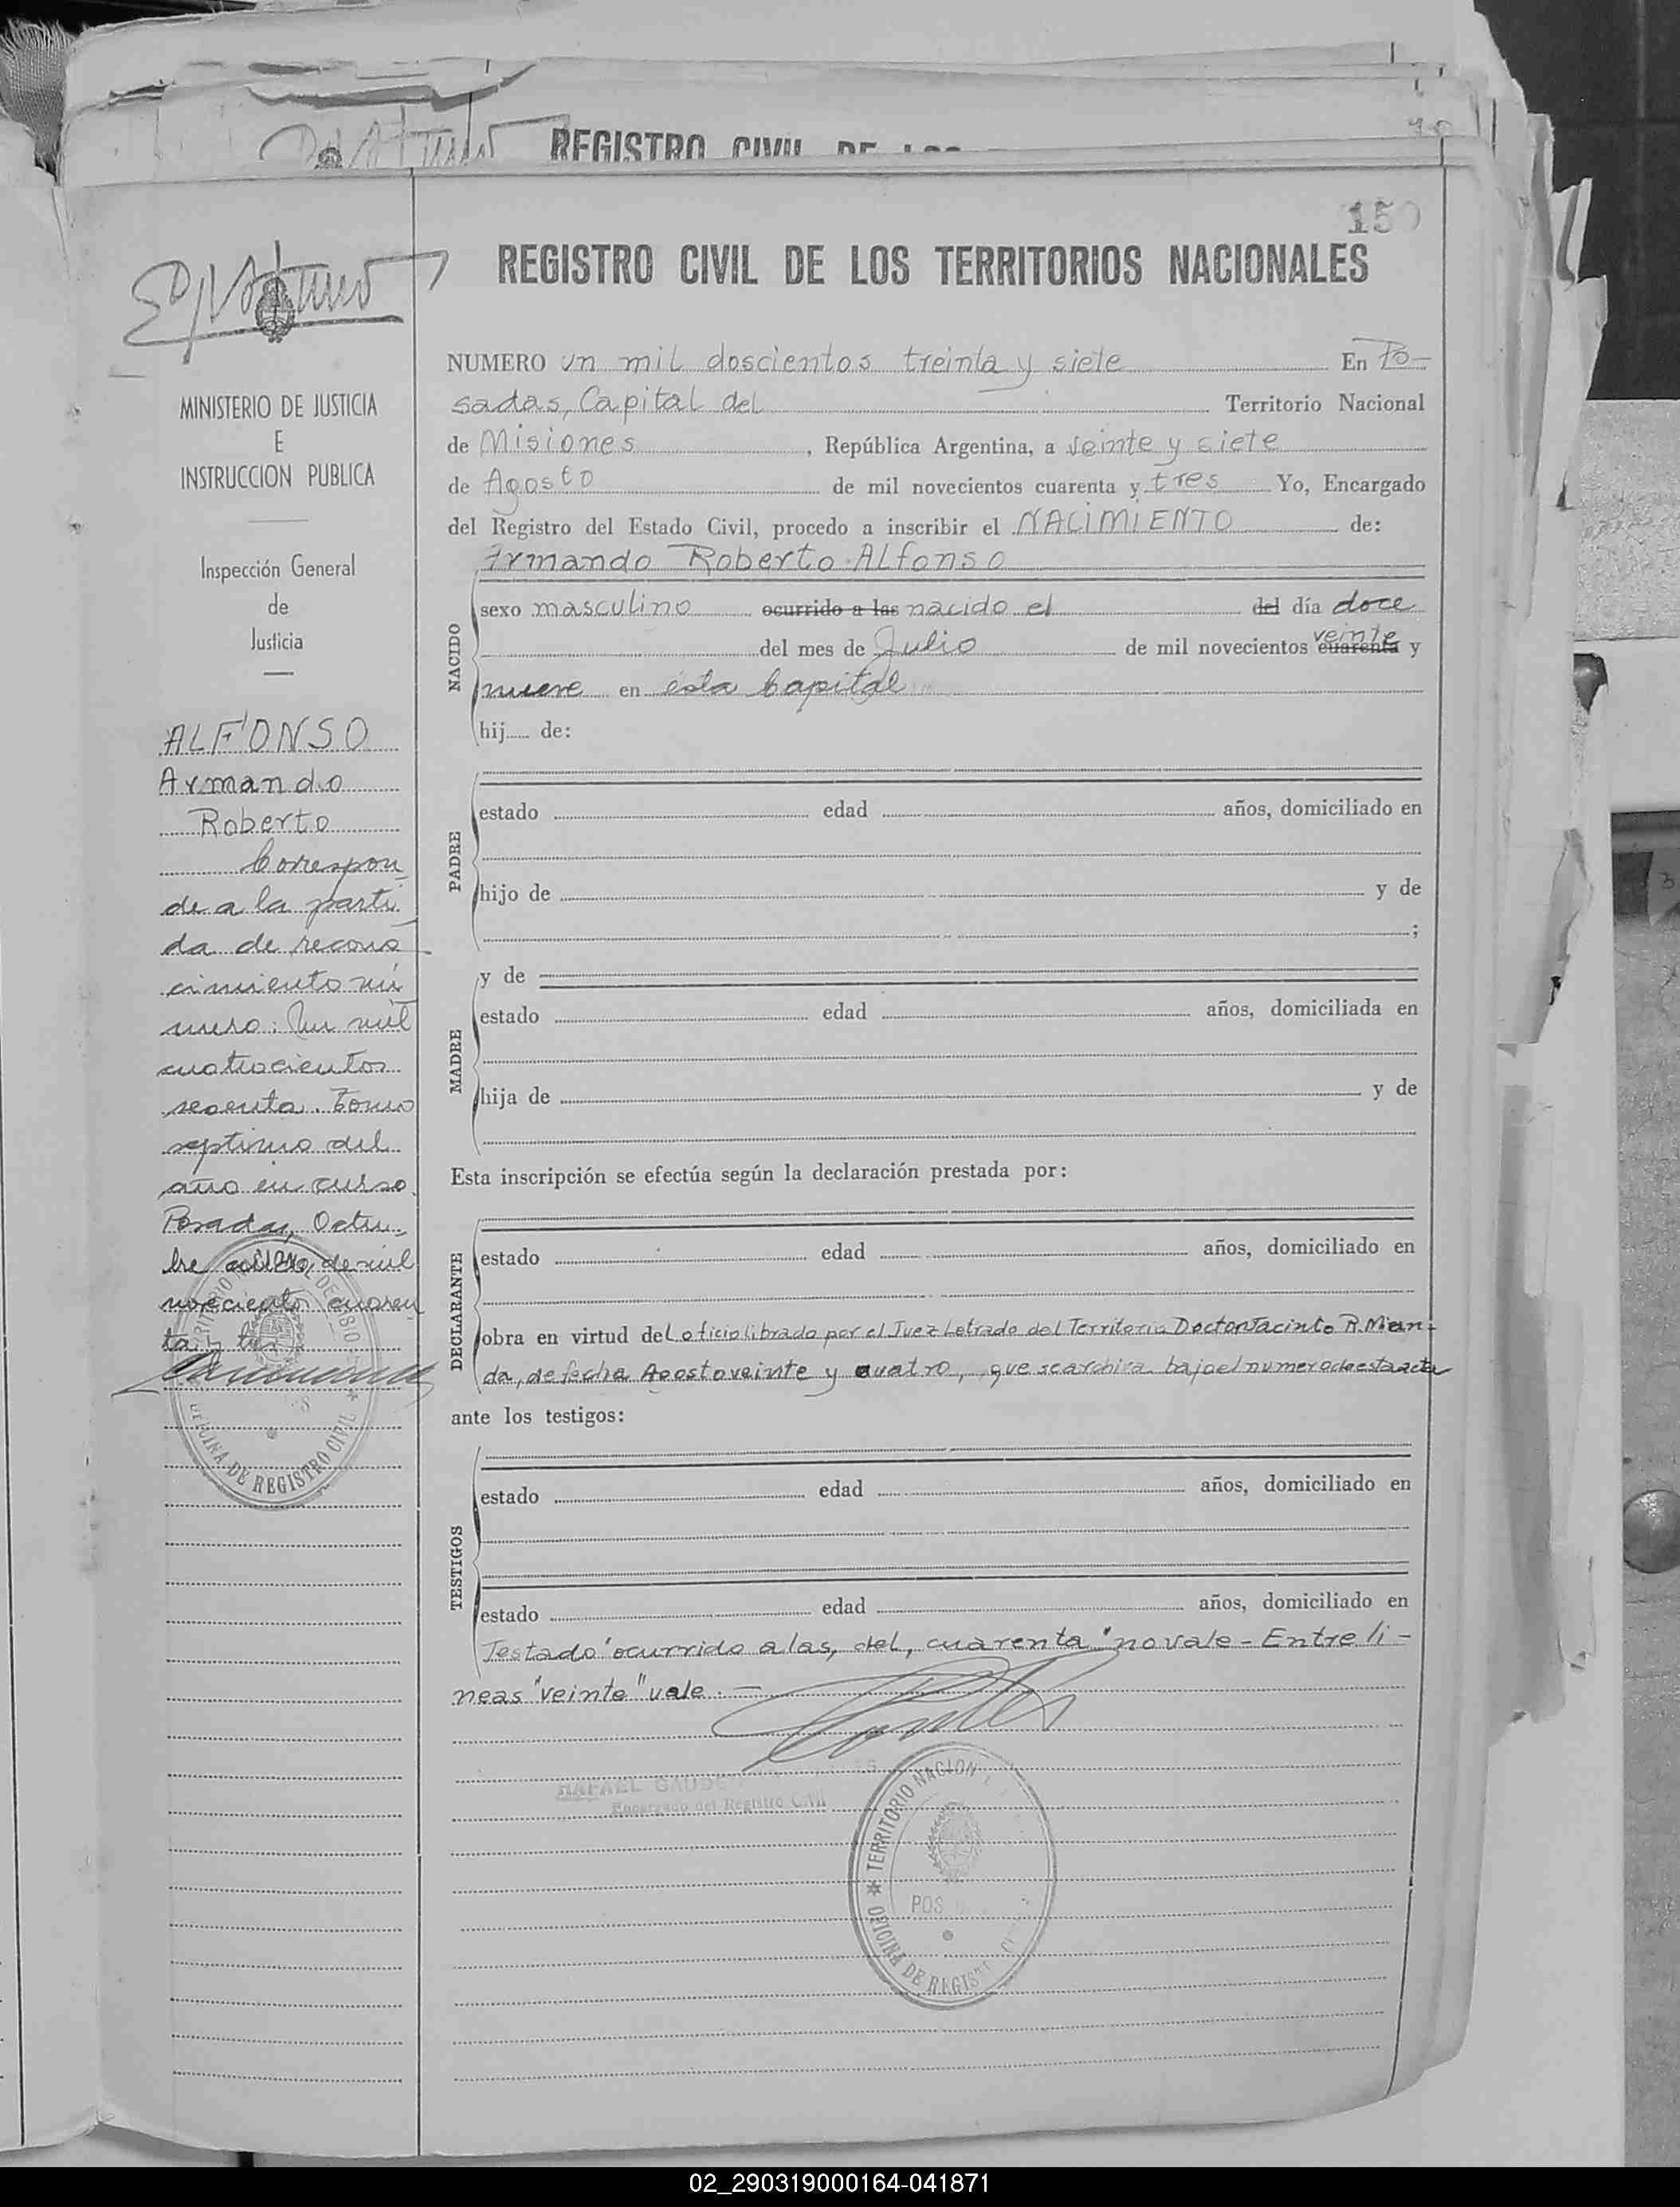 REGISTRO CIVIL DE LOS
150
REGISTRO CIVIL DE LOS TERRITORIOS NACIONALES
MINISTERIO DE JUSTICIA
E
INSTRUCCION PUBLICA
Inspección General
de
Justicia
ALFONSO
Armando
Roberto
Correspon
de a la parti
da de recono
cimiento nú
mero: Un mil
cuatrocientos
sesenta. Tomo
septimo del
año en curso.
Posadas, Octu-
bre de mil
novecientos cuaren
ta y tres
OFICINA DE REGISTRO CIVIL
NUMERO un mil doscientos treinta y siete En Po-
sadas, Capital del Territorio Nacional
de Misiones, República Argentina, a veinte y siete
de Agosto de mil novecientos cuarenta y tres Yo, Encargado
del Registro del Estado Civil, procedo a inscribir el NACIMIENTO de:
Armando Roberto Alfonso
NACIDO
sexo masculino ocurrido a las nacido el del día doce
del mes de Julio de mil novecientos cuarenta veinte y
nueve en esta Capital
hij..... de:
PADRE
estado edad años, domiciliado en
hijo de y de
;
MADRE
y de
estado edad años, domiciliada en
hija de y de
Esta inscripción se efectúa según la declaración prestada por:
DECLARANTE
estado edad años, domiciliado en
obra en virtud del oficio librado por el Juez Letrado del Territorio Doctor Jacinto R. Miran-
da, de fecha Agosto veinte y cuatro, que se archiva bajo el numero de esta acta
ante los testigos:
TESTIGOS
estado edad años, domiciliado en
estado edad años, domiciliado en
Testado "ocurrido a las, del, cuarenta" no vale - Entre li-
neas "veinte" vale. -
RAFAEL
Encargado del Registro Civil
TERRITORIO NACION
POS
OFICINA DE REGIS
02_290319000164-041871